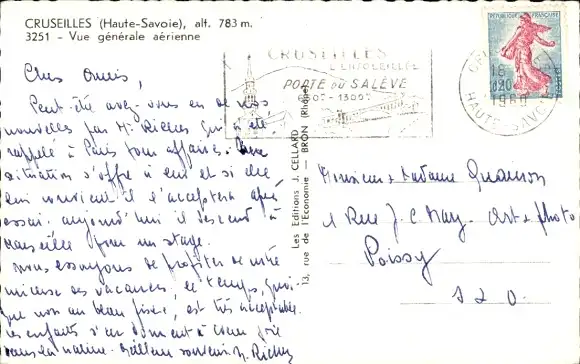 CRUSEILLES (Haute-Savoie), alt. 783 m.
3251 - Vue générale aérienne
CRUSEILLES
L'ENSOLEILLÉE
PORTE DU SALÈVE
800m - 1300m
REPUBLIQUE FRANÇAISE
0,20
18
1960
HAUTE-SAVOIE
Chers amis,
Peut-être avez-vous eu de nos
nouvelles par Mr Richez qui a été
rappelé à Paris pour affaires. Une
situation s'offre à lui et si elle
lui convient il l'acceptera après
essai. aujourd'hui il descend à
Marseille pour un stage.
Nous essayons de profiter de notre
mieux des vacances, le temps, quoi-
que non au beau fixe, est très acceptable
les enfants s'en donnent à cœur joie
dans la nature. Meilleur souvenir M. Richez
13, rue de l'Economie - BRON (Rhône)
Les Editions J. CELLARD
Monsieur & Madame
1 Rue J. C. Mary. Art & photo
Poissy
S & O.